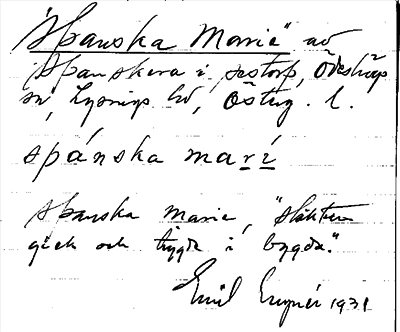 "Spanska Marie" av
Spanskera i sestorp, Ödeshög
sn, Lysings hd, Österg. l.
spánska marí
Spanska Maria, "släkten
gick och tiggde i bygda."
Emil 1931